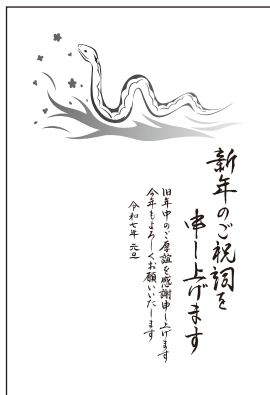 新年のご祝詞を
申し上げます
旧年中のご厚誼を感謝申し上げます
今年もよろしくお願いいたします
令和七年 元旦